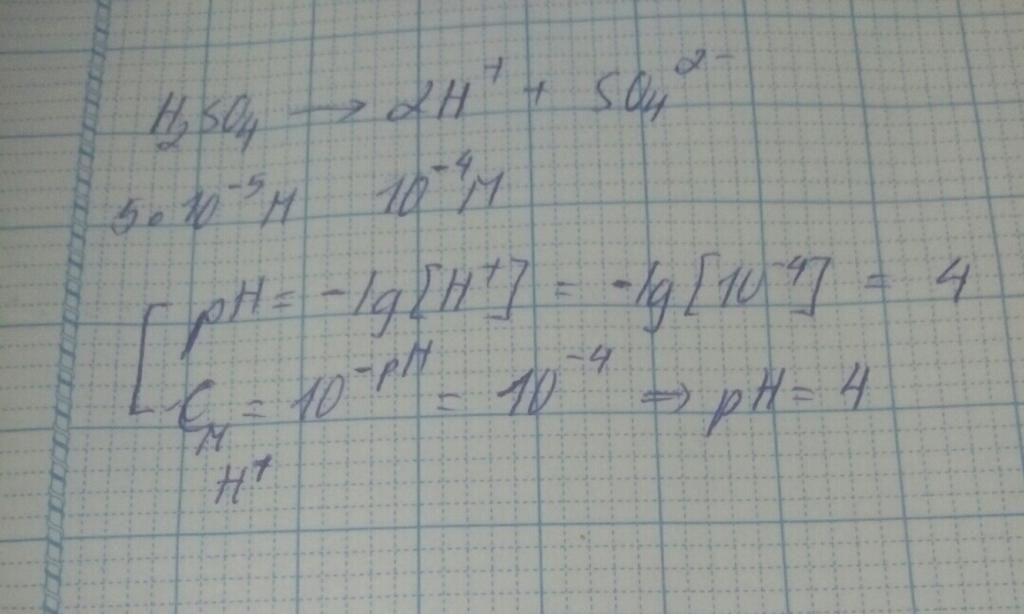 H₂SO₄ → 2H⁺ + SO₄²⁻
5·10⁻⁵M 10⁻⁴M
pH = -lg[H⁺] = -lg[10⁻⁴] = 4
C_M = 10^(-pH) = 10⁻⁴ ⇒ pH = 4
H⁺